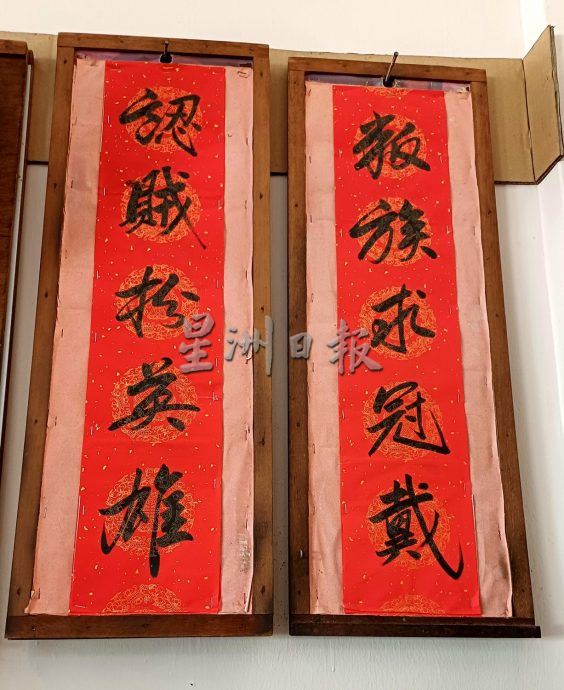 叛族求冠戴
認賊扮英雄
星洲日報